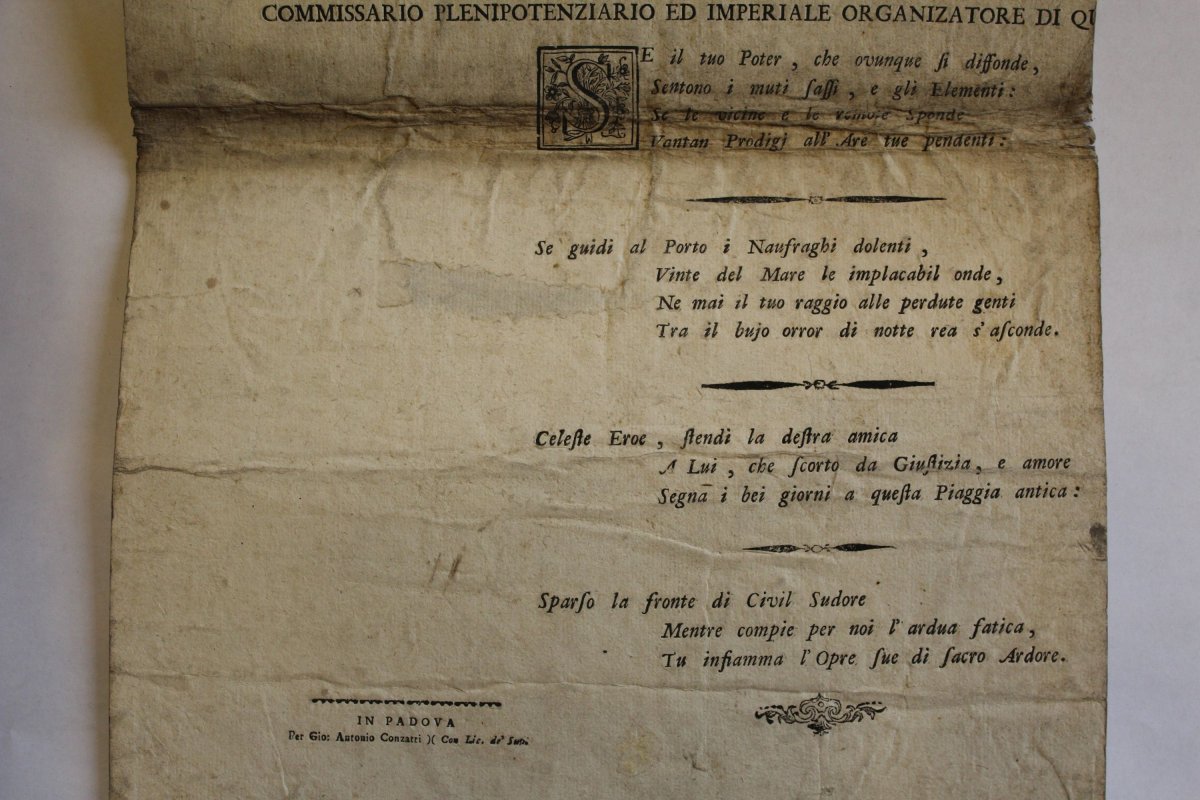 COMMISSARIO PLENIPOTENZIARIO ED IMPERIALE ORGANIZATORE DI
SE il tuo Poter, che ovunque ſi diffonde,
Sentono i muti ſaſſi, e gli Elementi:
Se le vicine e le remote Sponde
Vantan Prodigj all' Are tue pendenti:
Se guidi al Porto i Naufraghi dolenti,
Vinte del Mare le implacabil onde,
Ne mai il tuo raggio alle perdute genti
Tra il bujo orror di notte rea s'aſconde.
Celeſte Eroe, ſtendi la deſtra amica
A Lui, che ſcorto da Giuſtizia, e amore
Segna i bei giorni a queſta Piaggia antica:
Sparſo la fronte di Civil Sudore
Mentre compie per noi l'ardua fatica,
Tu infiamma l'Opre ſue di ſacro Ardore.
IN PADOVA
Per Gio: Antonio Conzatti )( Con Lic. de' Sup.